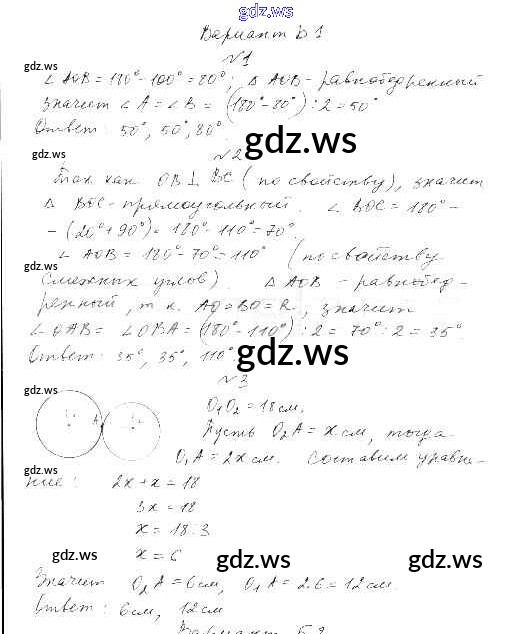 gdz.ws
Вариант Б1
gdz.ws
№1
∠AOB = 180° - 100° = 80°; Δ AOB - равнобедренный
значит ∠A = ∠B = (180° - 80°) : 2 = 50°
Ответ: 50°, 50°, 80°.
gdz.ws
gdz.ws
№2
Так как OB ⊥ BC (по свойству), значит
Δ BOC - прямоугольный. ∠BOC = 180° -
- (20° + 90°) = 180° - 110° = 70°.
∠AOB = 180° - 70° = 110° (по свойству
gdz.ws
смежных углов). Δ AOB - равнобед-
ренный, т.к. AO = BO = R, значит
∠OAB = ∠OBA = (180° - 110°) : 2 = 70° : 2 = 35°.
Ответ: 35°, 35°, 110°.
gdz.ws
№3
gdz.ws
A
O₁O₂ = 18 см.
Пусть O₂A = x см, тогда
O₁A = 2x см. Составим уравне-
gdz.ws
ние: 2x + x = 18
3x = 18
x = 18 : 3
x = 6
gdz.ws gdz.ws gdz.ws
Значит O₂A = 6 см, O₁A = 2·6 = 12 см.
Ответ: 6 см, 12 см
Вариант Б2